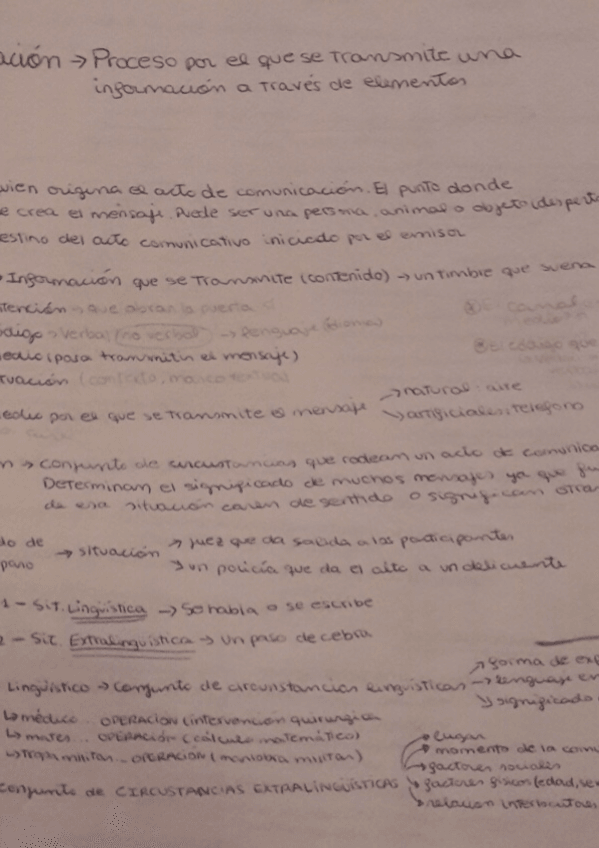 ación → Proceso por el que se transmite una
información a través de elementos
uien origina el acto de comunicación. El punto donde
e crea el mensaje. Puede ser una persona, animal o objeto
estino del acto comunicativo iniciado por el emisor
Información que se transmite (contenido) → un timbre que suena
tención → que abran la puerta
ódigo → verbal (no verbal) → lenguaje (idioma)
② canal
edio (para transmitir el mensaje)
② código que
tuación (contexto,
edio por el que se transmite el mensaje
→ natural: aire
→ artificiales: teléfono
n → conjunto de circunstancias que rodean un acto de comunica
Determinan el significado de muchos mensajes ya que
de esa situación caren de sentido o significan otra
do de
paro
→ situación
→ juez que da salida a los participantes
→ un policía que da el alto a un delicuente
1 - Sit. Lingüística → Se habla o se escribe
2 - Sit. Extralingüística → Un paso de cebra
Lingüístico → Conjunto de circunstancias lingüísticas
→ forma de exp
→ lenguaje en
→ significado
↳ médico.. OPERACIÓN (intervención quirurgica
↳ mates.. OPERACIÓN (cálculo matemático)
↳ militar.. OPERACIÓN (maniobra militar)
conjunto de CIRCUSTANCIAS EXTRALINGÜÍSTICAS
→ lugar
→ momento de la comu
→ factores sociales
→ factores físicos (edad,
→ relación